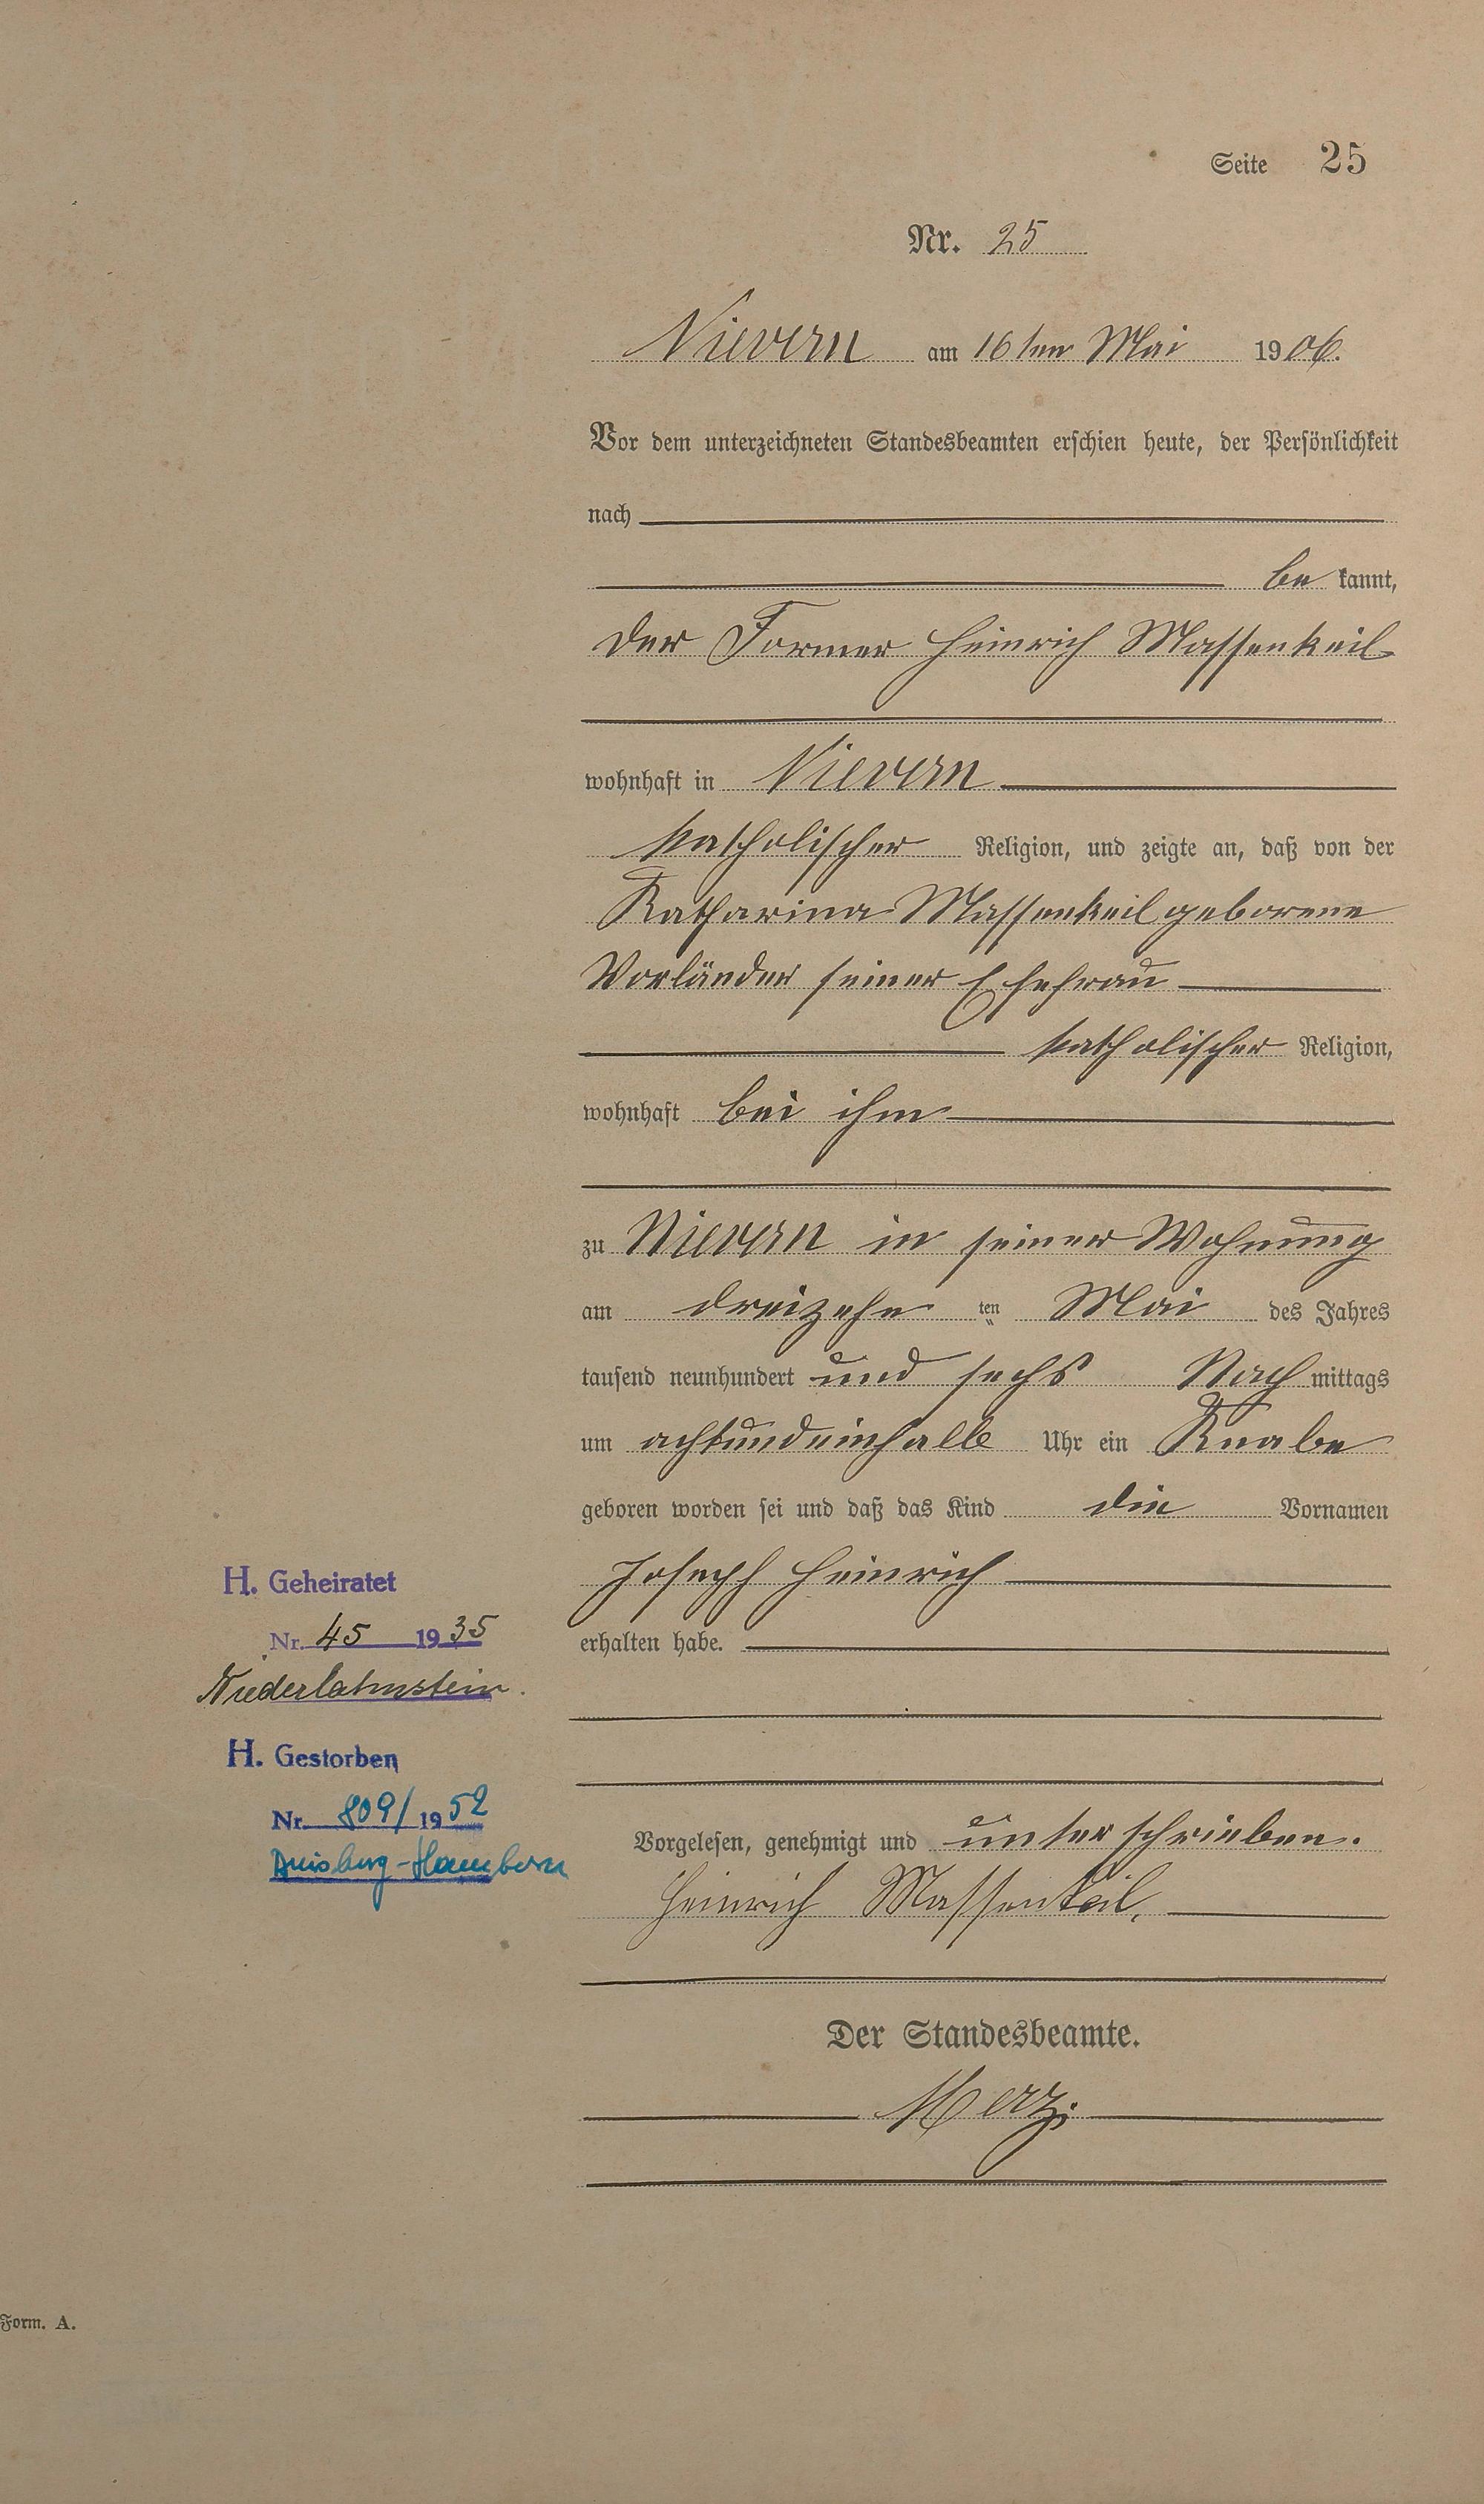 Seite 25
Nr. 25
Nievern am 16ten Mai 1906.
Vor dem unterzeichneten Standesbeamten erschien heute, der Persönlichkeit
nach
be kannt,
der Former Heinrich Massenkeil
wohnhaft in Nievern
katholischer Religion, und zeigte an, daß von der
Katharina Massenkeil geborene
Vorländer seiner Ehefrau
katholischer Religion,
wohnhaft bei ihm
zu Nievern in seiner Wohnung
am dreizehn ten Mai des Jahres
tausend neunhundert und sechs Nach mittags
um achtundeinhalb Uhr ein Knabe
geboren worden sei und daß das Kind die Vornamen
Joseph Heinrich
erhalten habe.
H. Geheiratet
Nr. 45 1935
Niederlahnstein.
H. Gestorben
Nr. 809/1952
Duisburg-Hamborn
Vorgelesen, genehmigt und unterschrieben.
Heinrich Massenkeil.
Der Standesbeamte.
Merz.
Form. A.